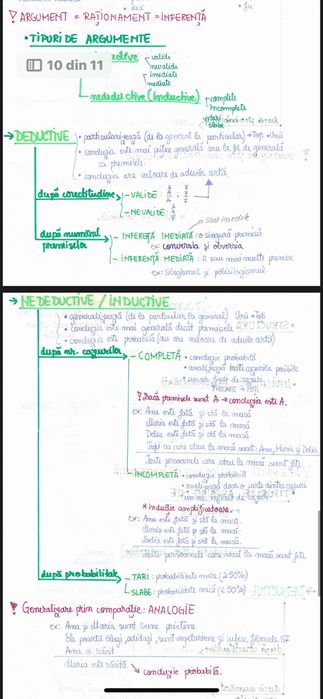 ! ARGUMENT = RAȚIONAMENT = INFERENȚĂ
• TIPURI DE ARGUMENTE
valide
nevalide
imediate
mediate
10 din 11
nedeductive (inductive)
complete
incomplete
tari
slabe
→ DEDUCTIVE
• particularizează (de la general la particular) → Toți → Unii
• concluzia este mai puțin generală sau la fel de generală
ca premisele
• concluzia are valoare de adevăr certă
după corectitudine
- VALIDE
- NEVALIDE
după numărul premiselor
- INFERENȚĂ IMEDIATĂ: o singură premisă
ex: conversia și obversia
- INFERENȚĂ MEDIATĂ: 2 sau mai multe premise
ex: silogismul și polisilogismul
→ NEDEDUCTIVE / INDUCTIVE
• generalizează (de la particular la general) Unii → Toți
• concluzia este mai generală decât premisele
• concluzia este probabilă (nu are valoare de adevăr certă)
după nr. cazurilor
- COMPLETĂ
• concluzie probabilă
• analizează toate cazurile posibile
• număr finit de cazuri
FIECARE → Toți
! Dacă premisele sunt A → concluzia este A.
ex: Ana este fată și stă la masă
Maria este fată și stă la masă
Delia este fată și stă la masă
Toți cu care stau la masă sunt: Ana, Maria și Delia
Toate persoanele care stau la masă sunt fete
- INCOMPLETĂ
• concluzie probabilă
• analizează doar o parte dintre cazuri
* Inducție amplificatoare
ex: Ana este fată și stă la masă
Maria este fată și stă la masă
Delia este fată și stă la masă
Toate persoanele care stau la masă sunt fete
după probabilitate
- TARI: probabilitate mare (≥50%)
- SLABE: probabilitate mică (<50%)
! Generalizare prin comparație: ANALOGIE
ex: Ana și Maria sunt bune prietene
Ele poartă blugi, adidași, sunt vegetariene și iubesc filmele SF
Ana a răcit
Maria este răcită
→ concluzie probabilă.